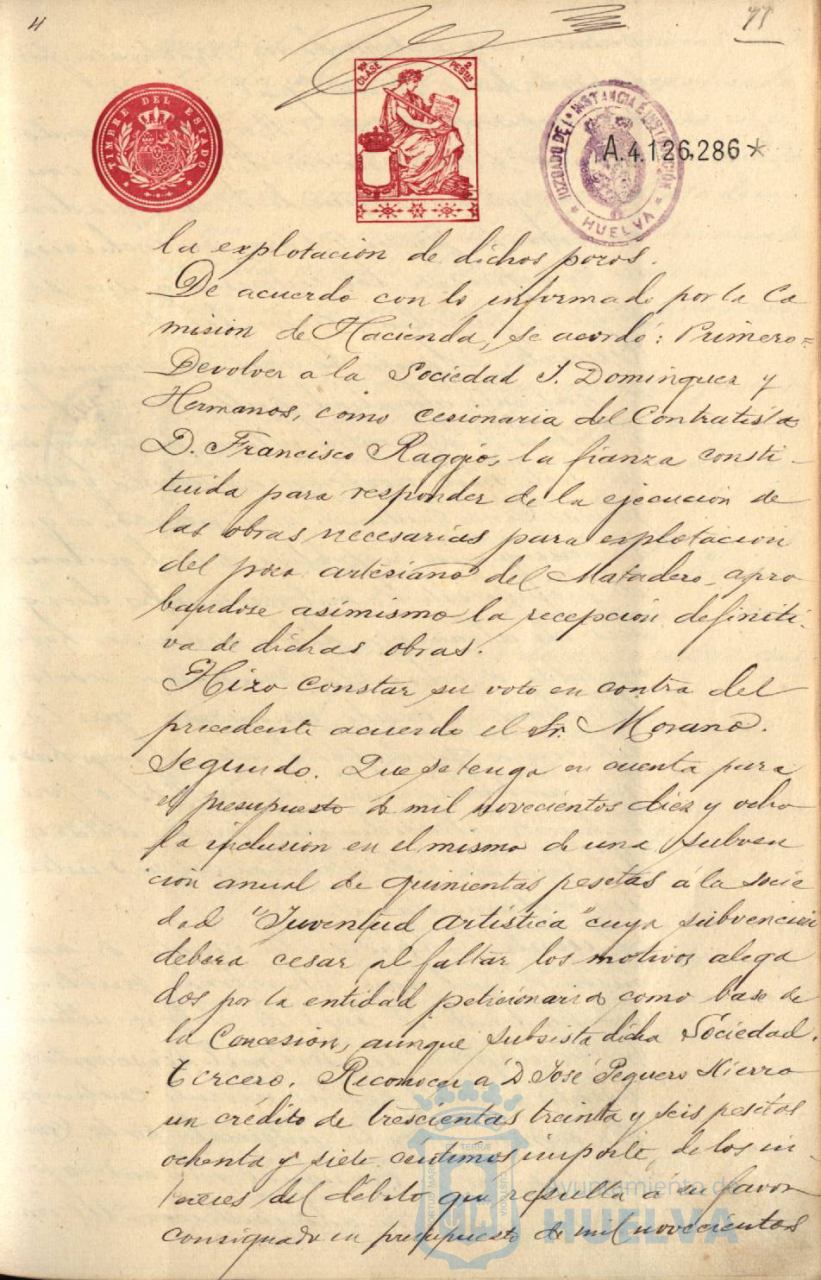 4
77
10ª CLASE
2 PESTAS
TIMBRE DEL ESTADO
JUZGADO DE 1ª INSTANCIA E INSTRUCCIÓN
* HUELVA *
A.4.126.286*
la explotación de dichos pozos.
De acuerdo con lo informado por la Co
misión de Hacienda, se acordó: Primero=
Devolver á la Sociedad J. Dominguez y
Hermanos, como cesionaria del Contratista
D. Francisco Raggio, la fianza consti-
tuida para responder de la ejecución de
las obras necesarias para explotación
del pozo artesiano del Matadero, apro
bandose asimismo la recepción definiti-
va de dichas obras.
Hizo constar su voto en contra del
precedente acuerdo el Sr. Morano.
Segundo. Que se tenga en cuenta para
el presupuesto de mil novecientos diez y ocho
la inclusión en el mismo de una subven
ción anual de quinientas pesetas á la socie
dad "Juventud Artística" cuya subvención
deberá cesar al faltar los motivos alega
dos por la entidad peticionaria como base de
la Concesión, aunque subsista dicha Sociedad.
Tercero. Reconocer á D. José Peguero Hierro
un crédito de trescientas treinta y seis pesetas
ochenta y siete céntimos importe de los in-
tereses del débito que resulta á su favor
consignado en presupuesto de mil novecientos
Ayuntamiento de
HUELVA